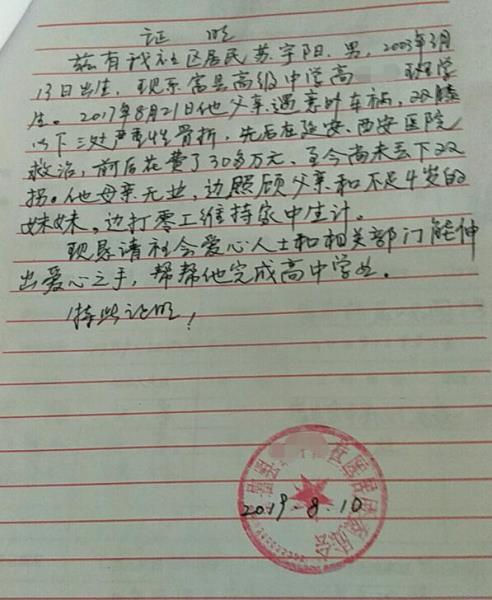 证 明
兹有我社区居民苏宇阳,男,2003年3月
13日出生,现系富县高级中学高 班学
生。2017年8月21日他父亲遇意外车祸,双膝
以下三处严重性骨折,先后在延安、西安医院
救治,前后花费了30多万元,至今尚未丢下双
拐。他母亲无业,边照顾父亲和不足4岁的
妹妹,边打零工维持家中生计。
现恳请社会爱心人士和相关部门能伸
出爱心之手,帮帮他完成高中学业。
特此证明!
富县 区居民委员会
2019.8.10